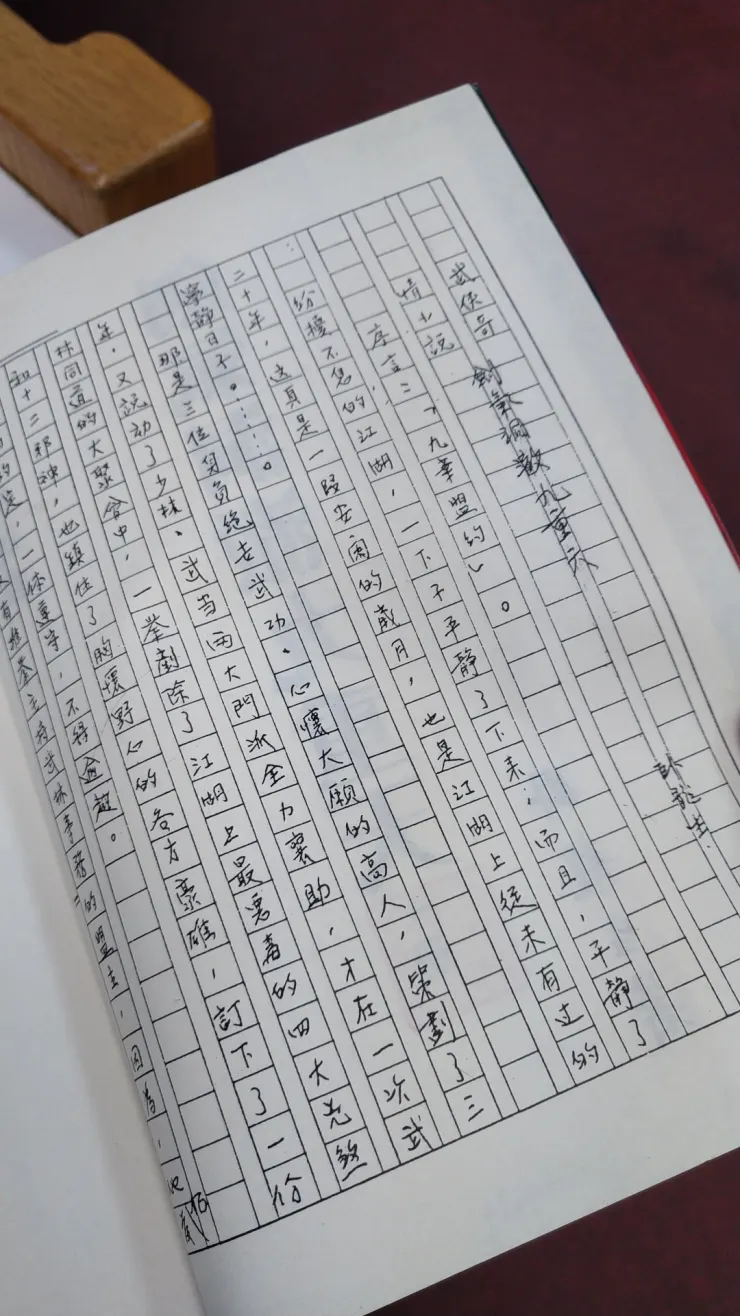 武俠奇
劍氣洞徹九重天
臥龍生
情小說
序言:「九華盟約」。
紛擾不息的江湖,一下子平靜了下來;而且,平靜了
二十年,這真是一段安閒的歲月,也是江湖上從未有過的
寧靜日子。……。
那是三位身負絕世武功、心懷大願的高人,策劃了三
年,又說動了少林、武当兩大門派全力襄助,才在一次武
林同道的大聚會中,一举剷除了江湖上最恶毒的四大兇煞
和十二邪神,也鎮住了胸懷野心的各方豪雄,訂下了一份
一体遵守,不得逾越。
有推舉主持武林事務的盟主,因為,他